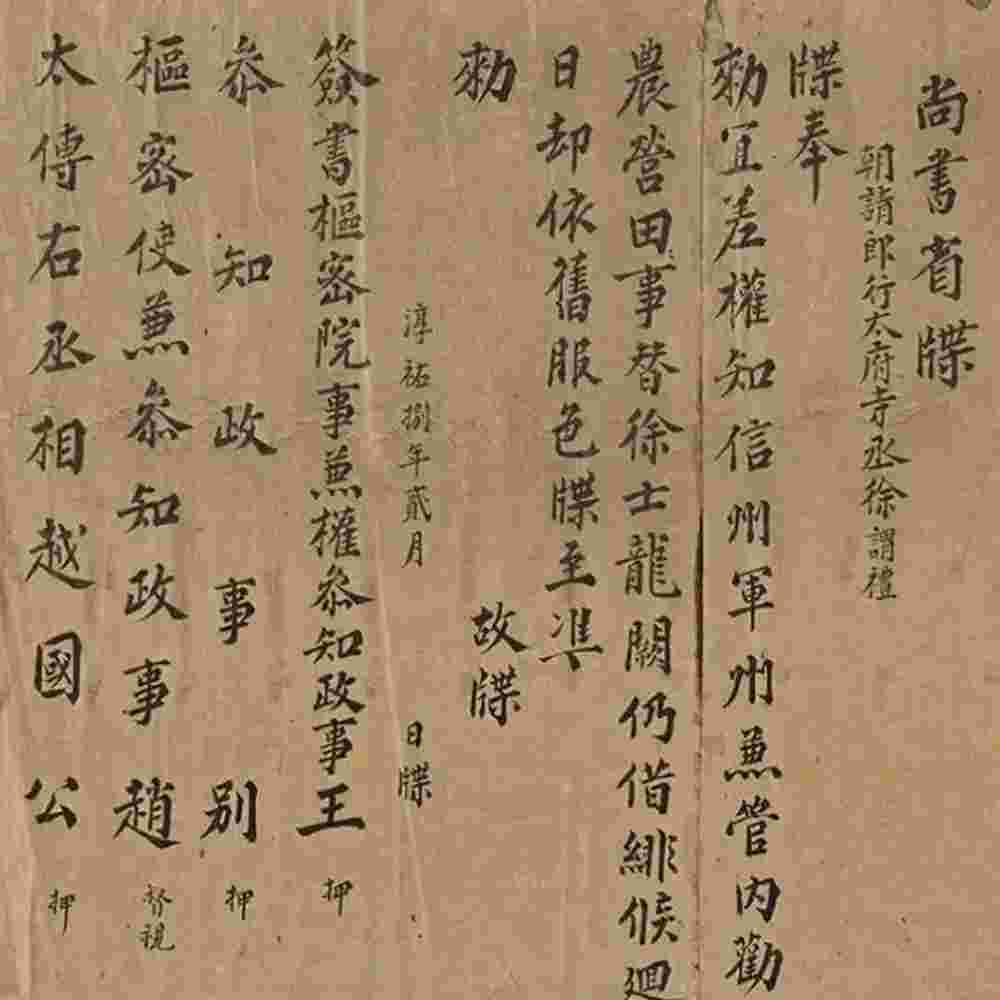 尚書省牒
朝請郎行太府寺丞徐謂禮
牒奉
敕宜差權知信州軍州兼管內勸
農營田事替徐士龍闕仍借緋候迴
日却依舊服色牒至準
敕故牒
淳祐捌年貳月日牒
簽書樞密院事兼權叅知政事王押
叅知政事别押
樞密使兼叅知政事趙督視
太傅右丞相越國公押